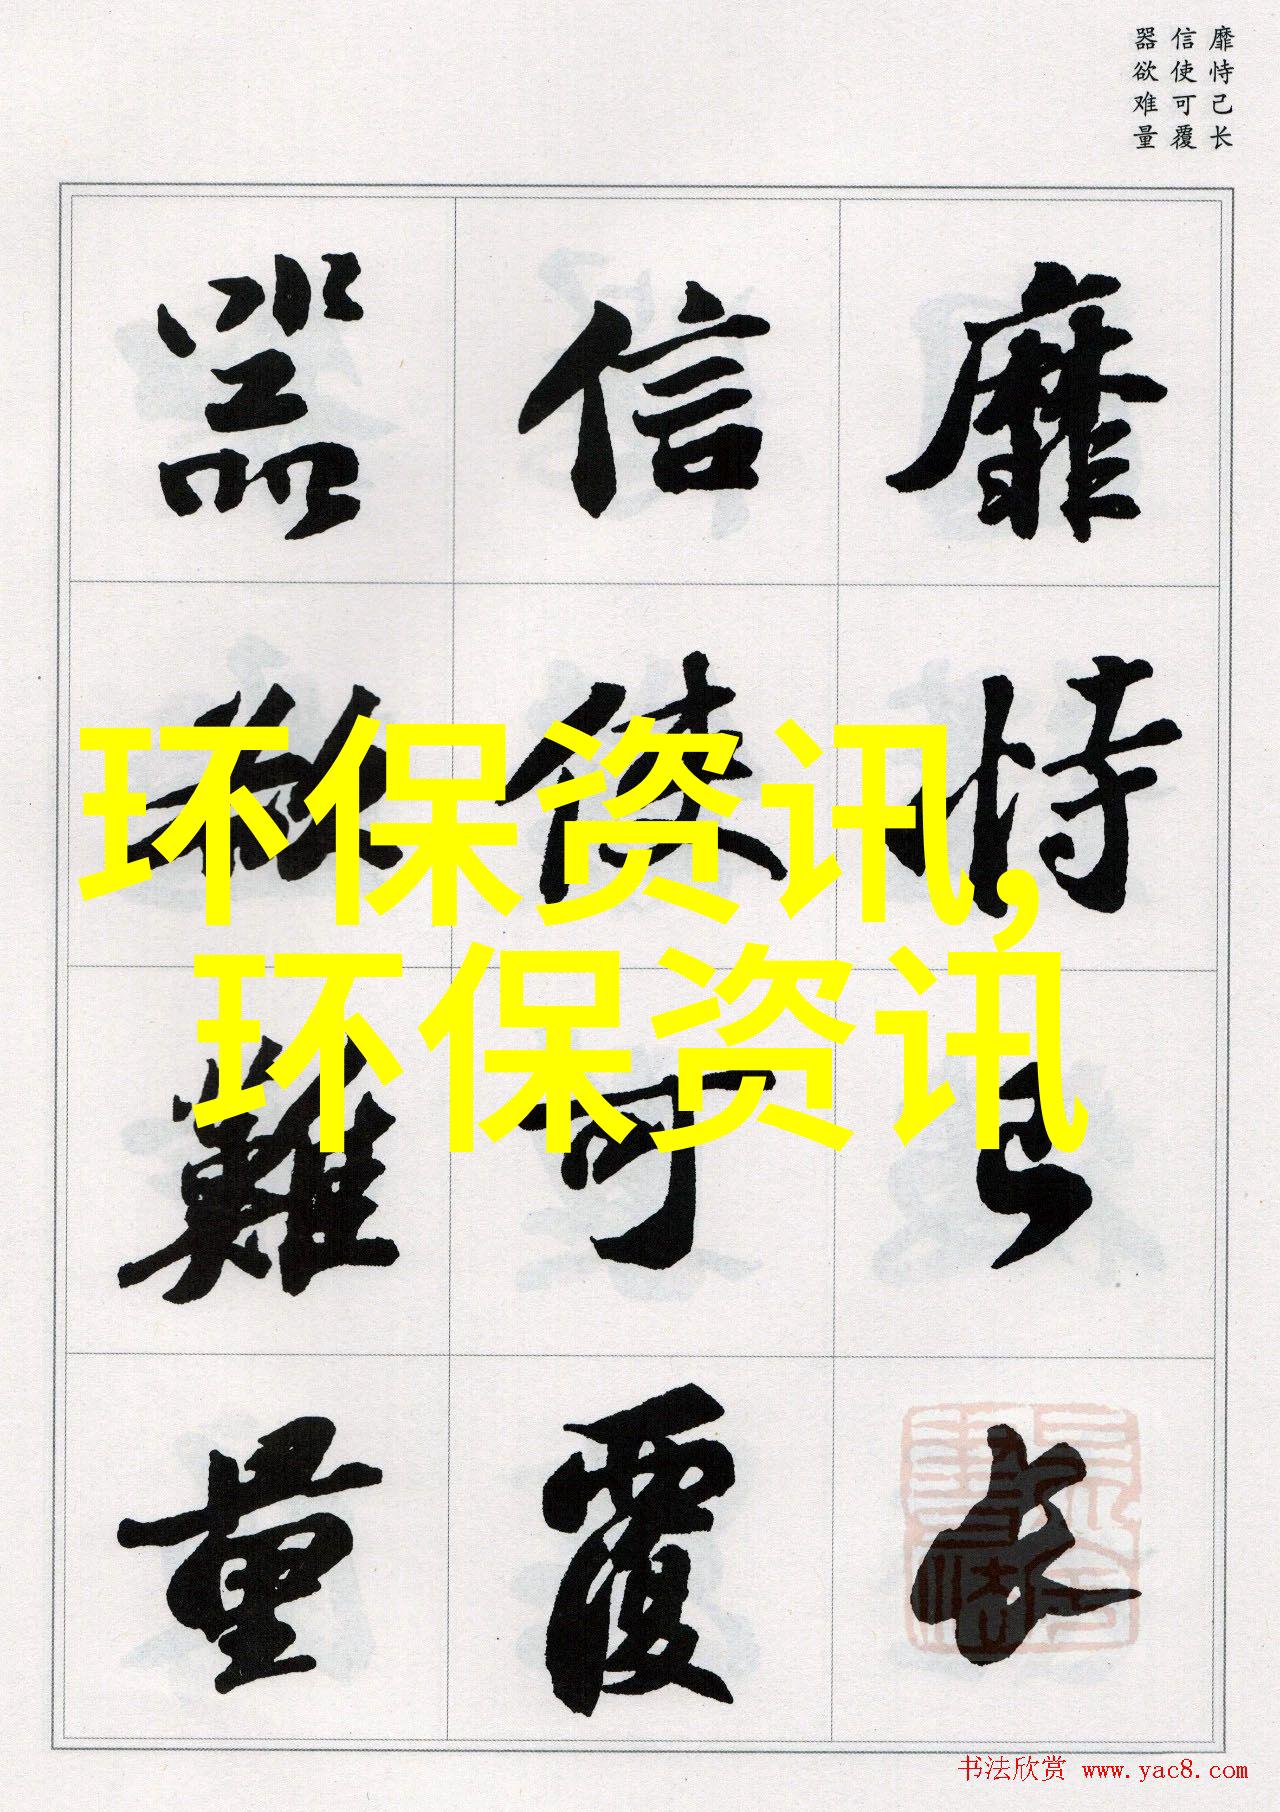 靡恃己长
信使可覆
器欲难量
靡恃己长
信使可覆
器欲難量
环保资讯,
环保资讯
书法欣赏 www.yac8.com